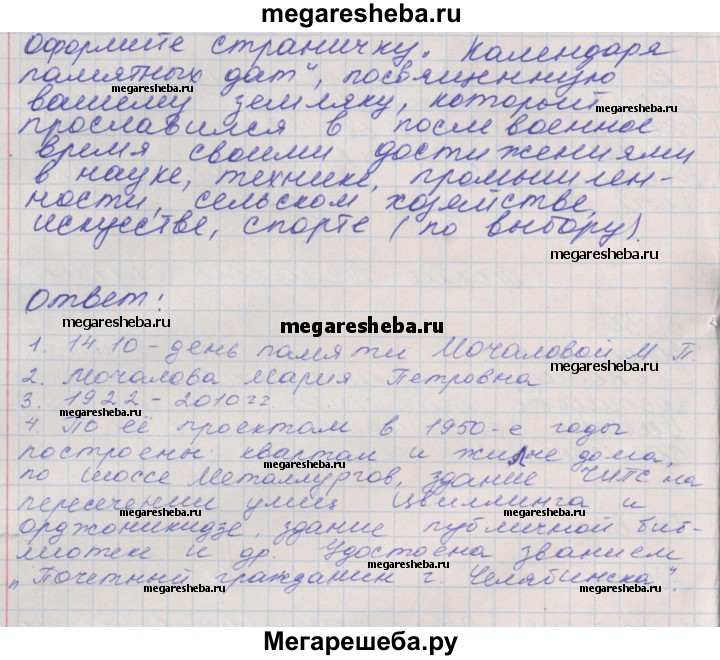 megaresheba.ru
Оформите страничку „Календаря
памятных дат", посвященную
вашему земляку, который
megaresheba.ru
прославился в послевоенное
время своими достижениями
в науке, технике, промышлен-
ности, сельском хозяйстве,
искусстве, спорте (по выбору).
megaresheba.ru
Ответ:
megaresheba.ru
megaresheba.ru
megaresheba.ru
1. 14.10 - день памяти Мочаловой М. П.
2. Мочалова Мария Петровна
megaresheba.ru
3. 1922 - 2010 гг
4. По её проектам в 1950-е годы
построены квартал и жилые дома,
megaresheba.ru
по шоссе Металлургов, здание ЧИПС на
пересечении улиц Цвиллинга и
megaresheba.ru
Орджоникидзе, здание публичной биб-
лиотеке и др. Удостоена званием
megaresheba.ru
„Почетный гражданин г. Челябинска".
megaresheba.ru
Мегарешеба.ру